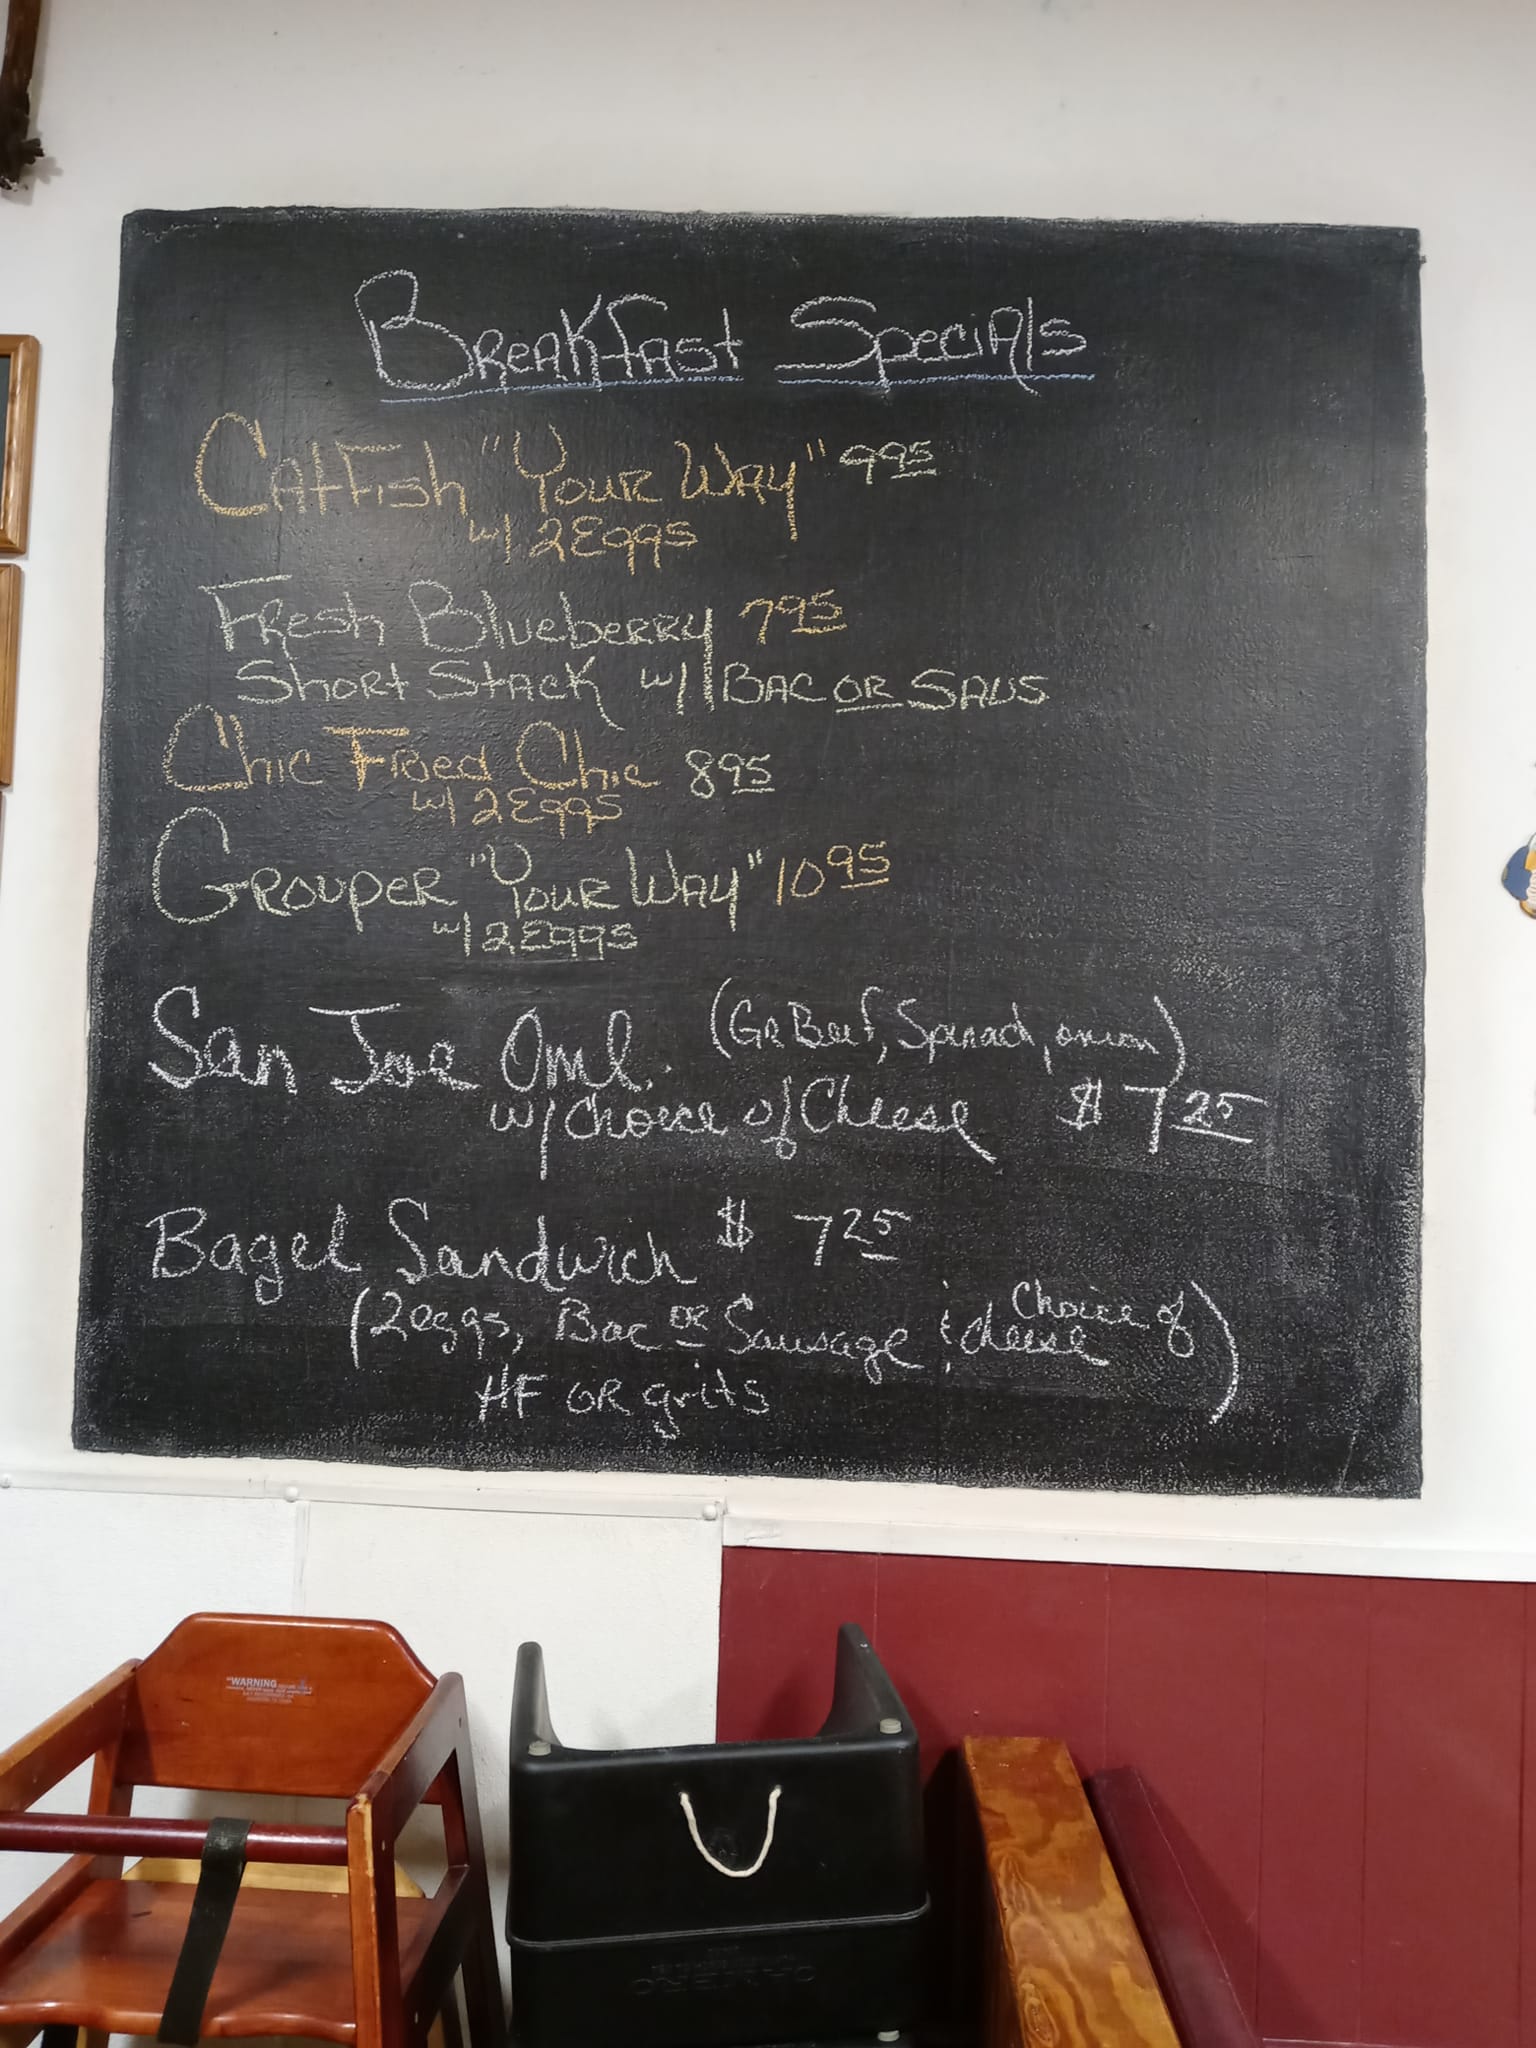 Breakfast Specials
Catfish "Your Way" 9 95
w/ 2 Eggs
Fresh Blueberry 7 95
Short Stack w/ Bac or Saus
Chic Fried Chic 8 95
w/ 2 Eggs
Grouper "Your Way" 10 95
w/ 2 Eggs
San Joe Oml. (Gr Beef, Spinach, onion)
w/ Choice of Cheese $ 7 25
Bagel Sandwich $ 7 25
(2 eggs, Bac or Sausage & Choice of cheese)
HF or grits
WARNING